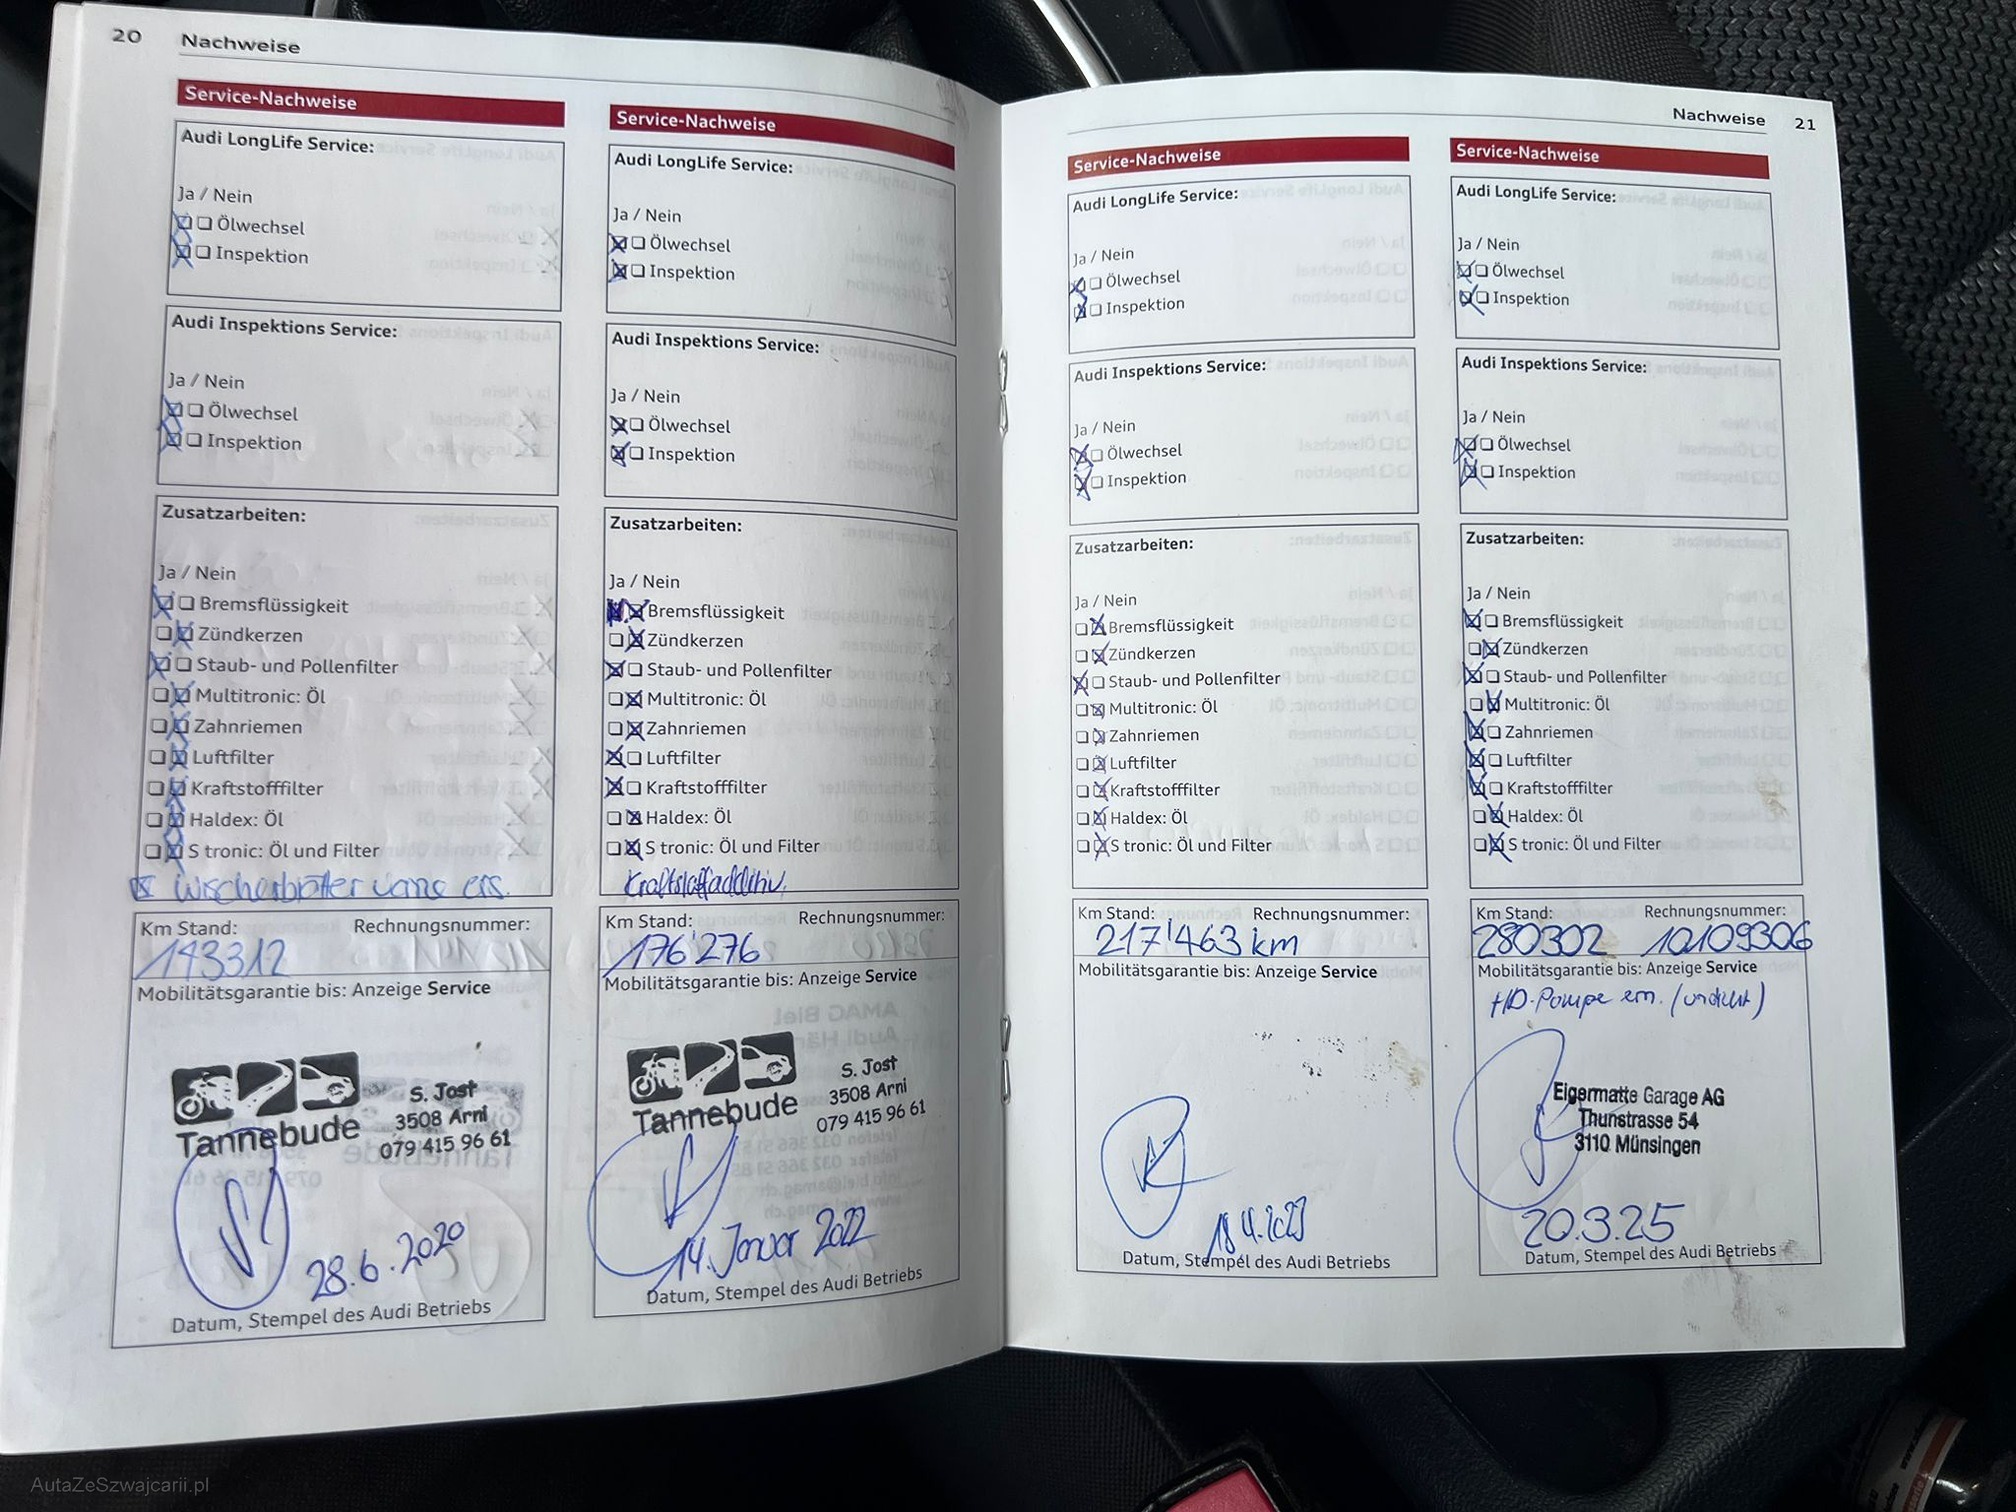 20 Nachweise
Service-Nachweise
Audi LongLife Service:
Ja / Nein
Ölwechsel
Inspektion
Audi Inspektions Service:
Ja / Nein
Ölwechsel
Inspektion
Zusatzarbeiten:
Ja / Nein
Bremsflüssigkeit
Zündkerzen
Staub- und Pollenfilter
Multitronic: Öl
Zahnriemen
Luftfilter
Kraftstofffilter
Haldex: Öl
S tronic: Öl und Filter
Wischerblätter vorne ers.
Km Stand: Rechnungsnummer:
143312
Mobilitätsgarantie bis: Anzeige Service
Tannebude
S. Jost
3508 Arni
079 415 96 61
28.6.2020
Datum, Stempel des Audi Betriebs
Service-Nachweise
Audi LongLife Service:
Ja / Nein
Ölwechsel
Inspektion
Audi Inspektions Service:
Ja / Nein
Ölwechsel
Inspektion
Zusatzarbeiten:
Ja / Nein
Bremsflüssigkeit
Zündkerzen
Staub- und Pollenfilter
Multitronic: Öl
Zahnriemen
Luftfilter
Kraftstofffilter
Haldex: Öl
S tronic: Öl und Filter
Kraftstoffadditiv.
Km Stand: Rechnungsnummer:
176'276
Mobilitätsgarantie bis: Anzeige Service
Tannebude
S. Jost
3508 Arni
079 415 96 61
14. Januar 2022
Datum, Stempel des Audi Betriebs
Nachweise 21
Service-Nachweise
Audi LongLife Service:
Ja / Nein
Ölwechsel
Inspektion
Audi Inspektions Service:
Ja / Nein
Ölwechsel
Inspektion
Zusatzarbeiten:
Ja / Nein
Bremsflüssigkeit
Zündkerzen
Staub- und Pollenfilter
Multitronic: Öl
Zahnriemen
Luftfilter
Kraftstofffilter
Haldex: Öl
S tronic: Öl und Filter
Km Stand: Rechnungsnummer:
217'463 km
Mobilitätsgarantie bis: Anzeige Service
18.4.2023
Datum, Stempel des Audi Betriebs
Service-Nachweise
Audi LongLife Service:
Ja / Nein
Ölwechsel
Inspektion
Audi Inspektions Service:
Ja / Nein
Ölwechsel
Inspektion
Zusatzarbeiten:
Ja / Nein
Bremsflüssigkeit
Zündkerzen
Staub- und Pollenfilter
Multitronic: Öl
Zahnriemen
Luftfilter
Kraftstofffilter
Haldex: Öl
S tronic: Öl und Filter
Km Stand: Rechnungsnummer:
280302 10109306
Mobilitätsgarantie bis: Anzeige Service
HD-Pumpe ern. (undicht)
Eigermatte Garage AG
Thunstrasse 54
3110 Münsingen
20.3.25
Datum, Stempel des Audi Betriebs
AutaZeSzwajcarii.pl